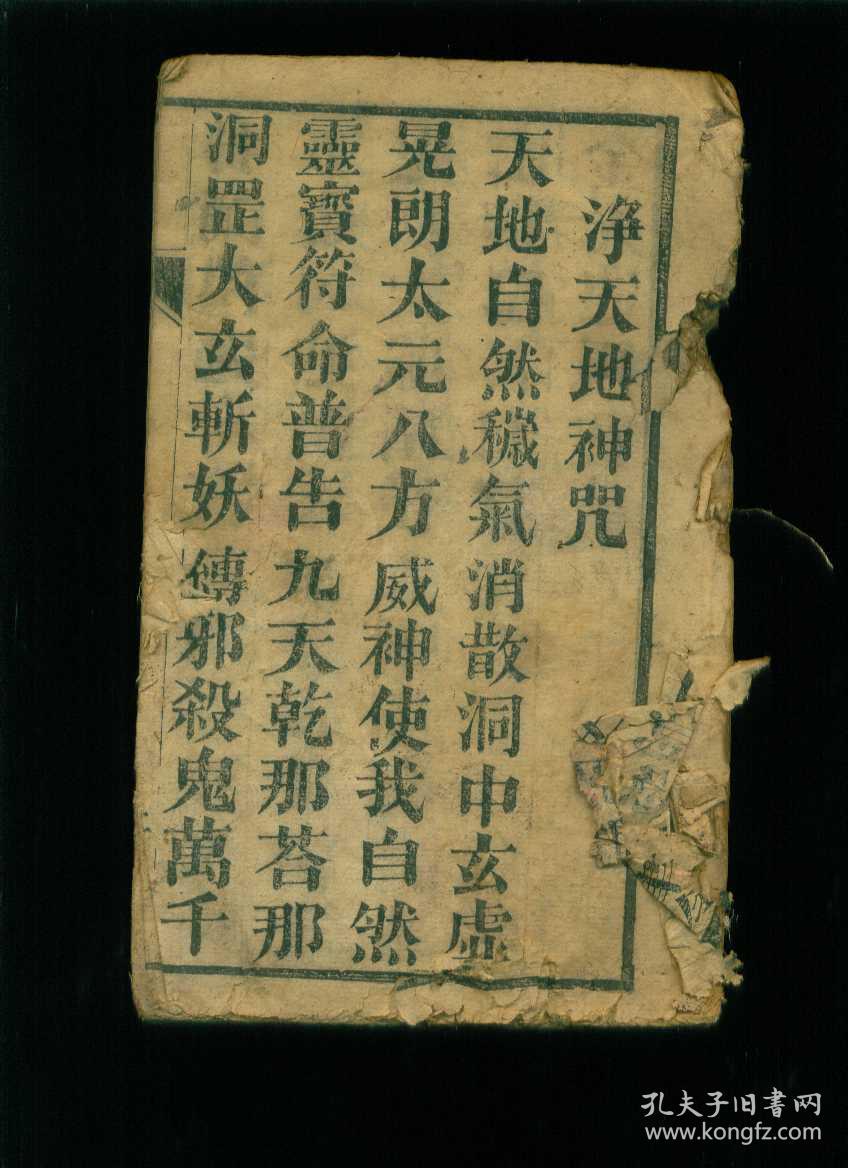 淨天地神咒
天地自然穢氣消散洞中玄虛
晃朗太元八方威神使我自然
靈寶符命普告九天乾那荅那
洞罡大玄斬妖縛邪殺鬼萬千
孔夫子旧書网
www.kongfz.com